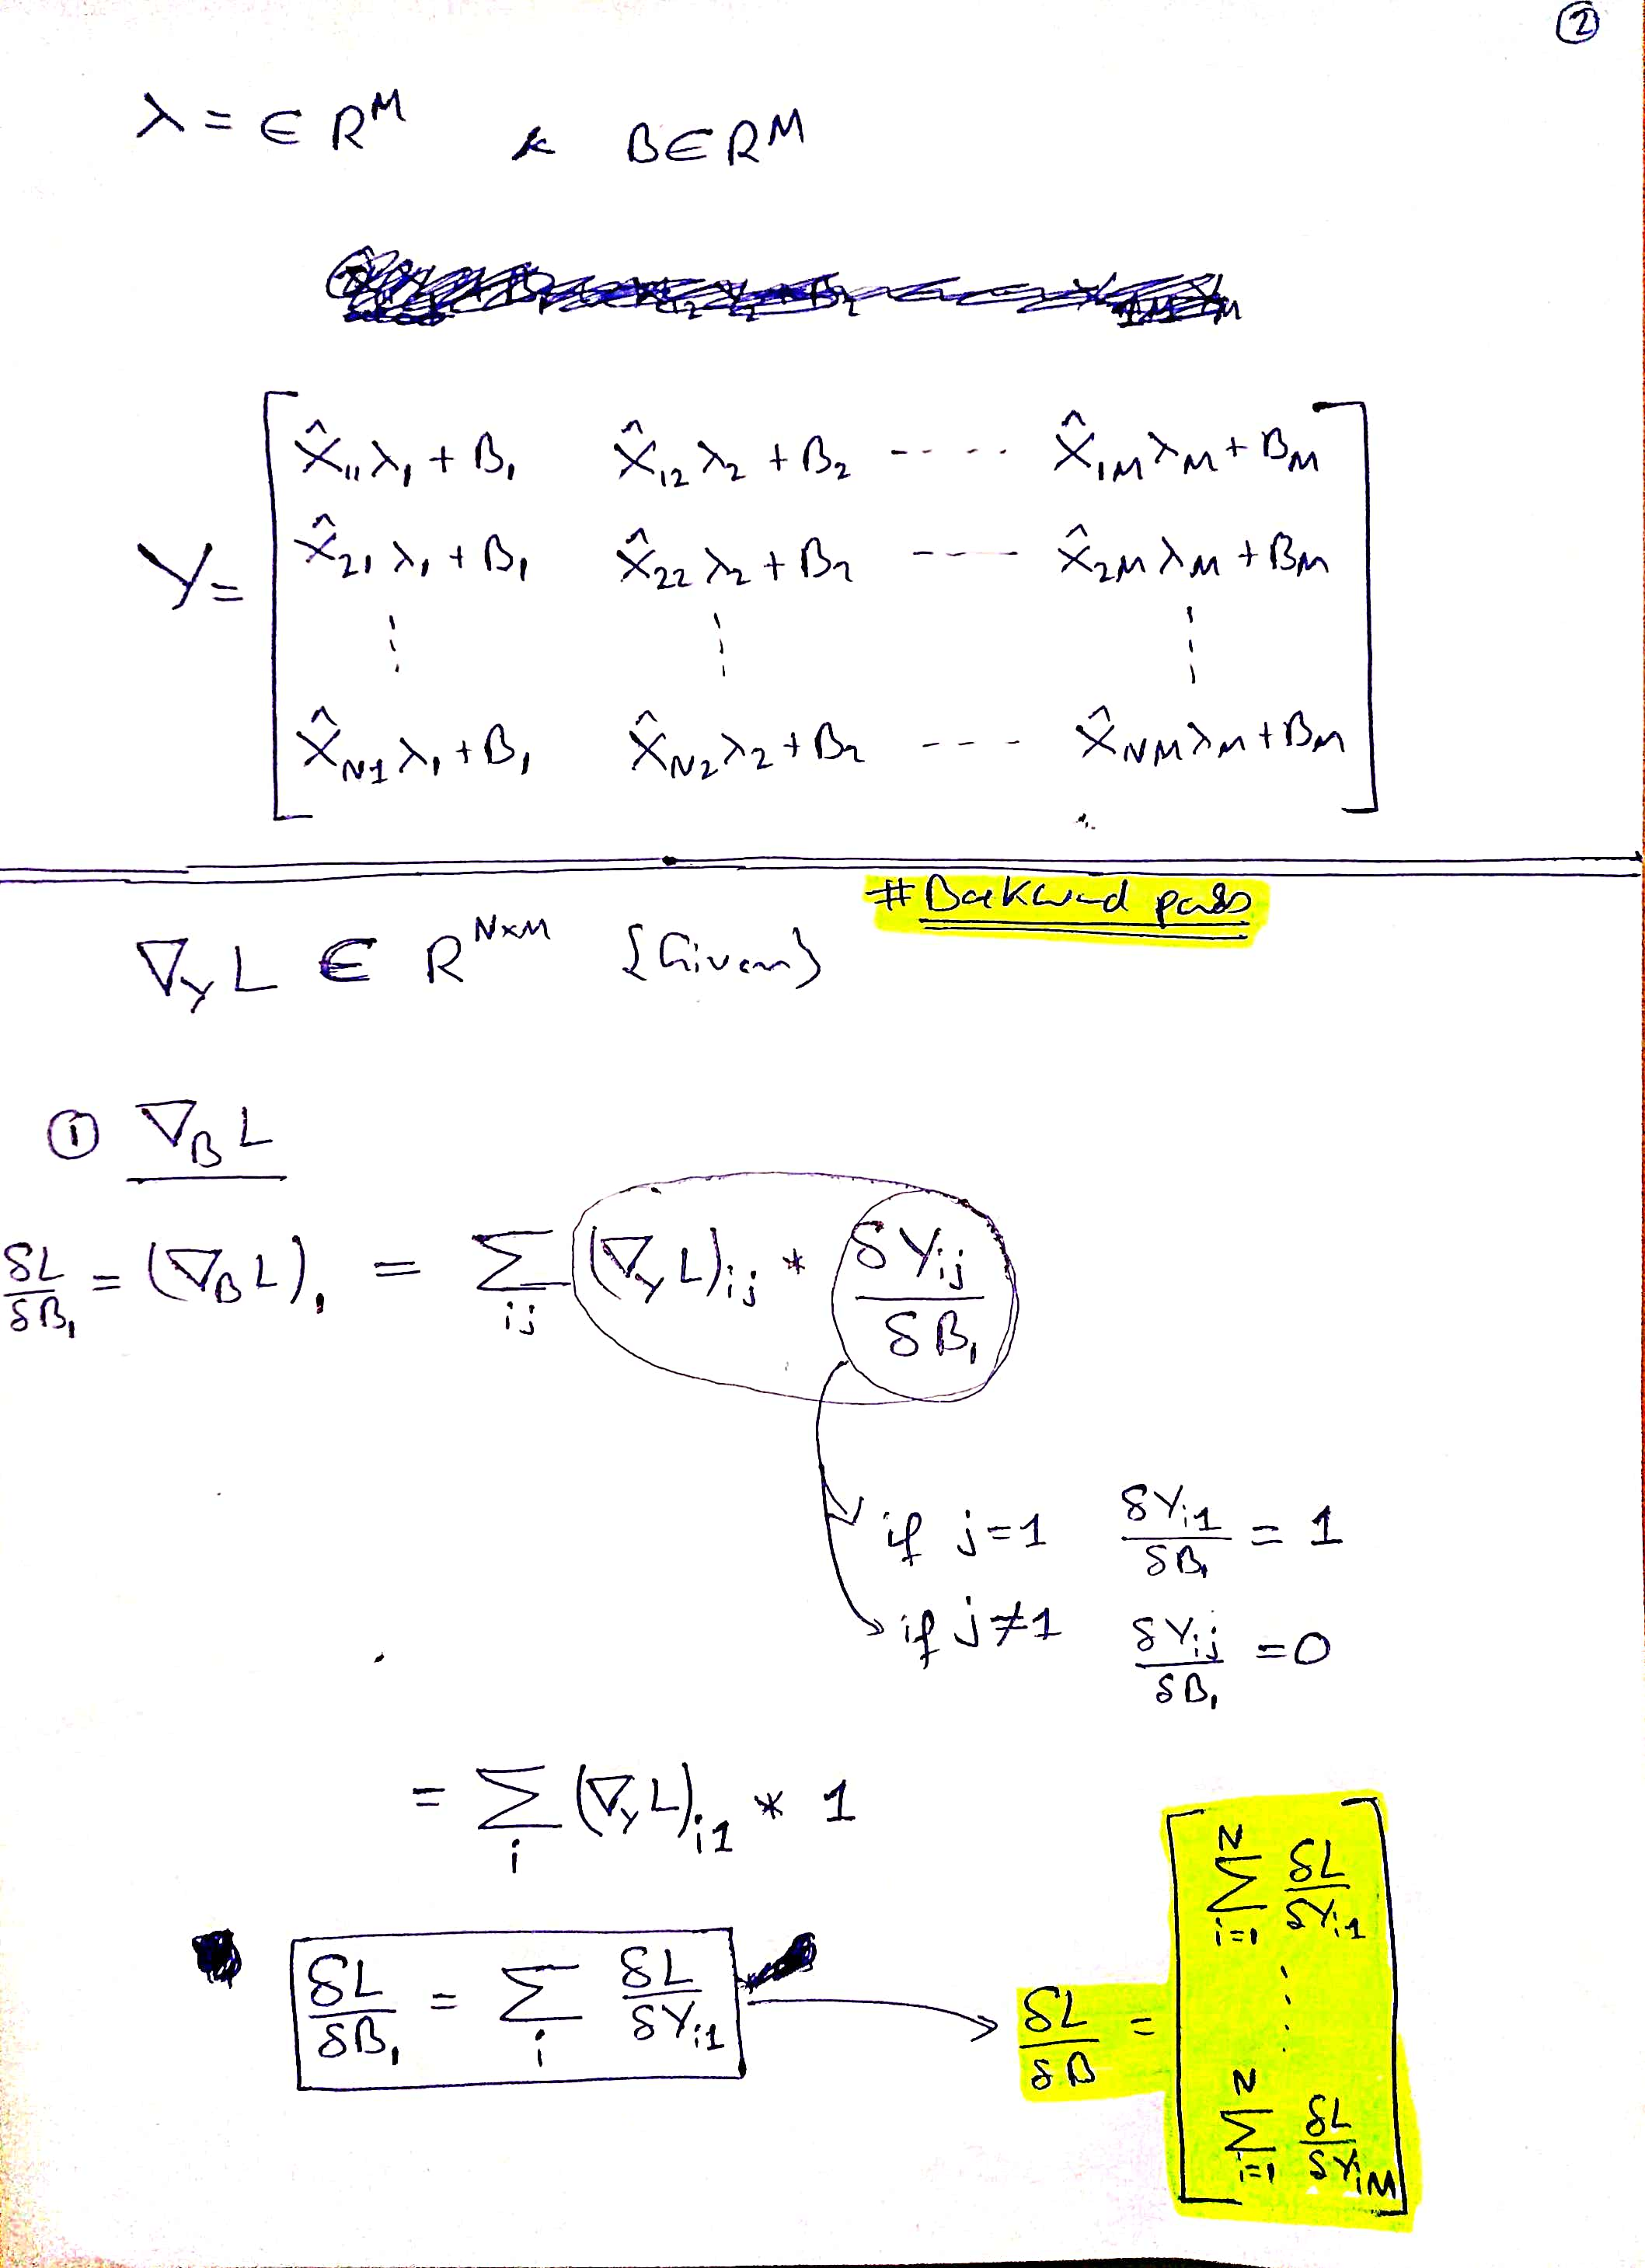 ②
λ = ∈ R^M & B ∈ R^M
Y = [ X̂₁₁λ₁ + B₁ X̂₁₂λ₂ + B₂ ---- X̂_{1M}λ_M + B_M
X̂₂₁λ₁ + B₁ X̂₂₂λ₂ + B₂ ---- X̂_{2M}λ_M + B_M
⋮ ⋮ ⋮
X̂_{N1}λ₁ + B₁ X̂_{N2}λ₂ + B₂ ---- X̂_{NM}λ_M + B_M ]
# Backward pass
∇_Y L ∈ R^{N×M} {Given}
① ∇_B L
δL/δB₁ = (∇_B L)₁ = Σ_{ij} (∇_Y L)_{ij} * δY_{ij}/δB₁
if j=1 δY_{i1}/δB₁ = 1
if j≠1 δY_{ij}/δB₁ = 0
= Σ_i (∇_Y L)_{i1} * 1
δL/δB₁ = Σ_i δL/δY_{i1} → δL/δB = [ Σ_{i=1}^N δL/δY_{i1} ⋮ Σ_{i=1}^N δL/δY_{iM} ]